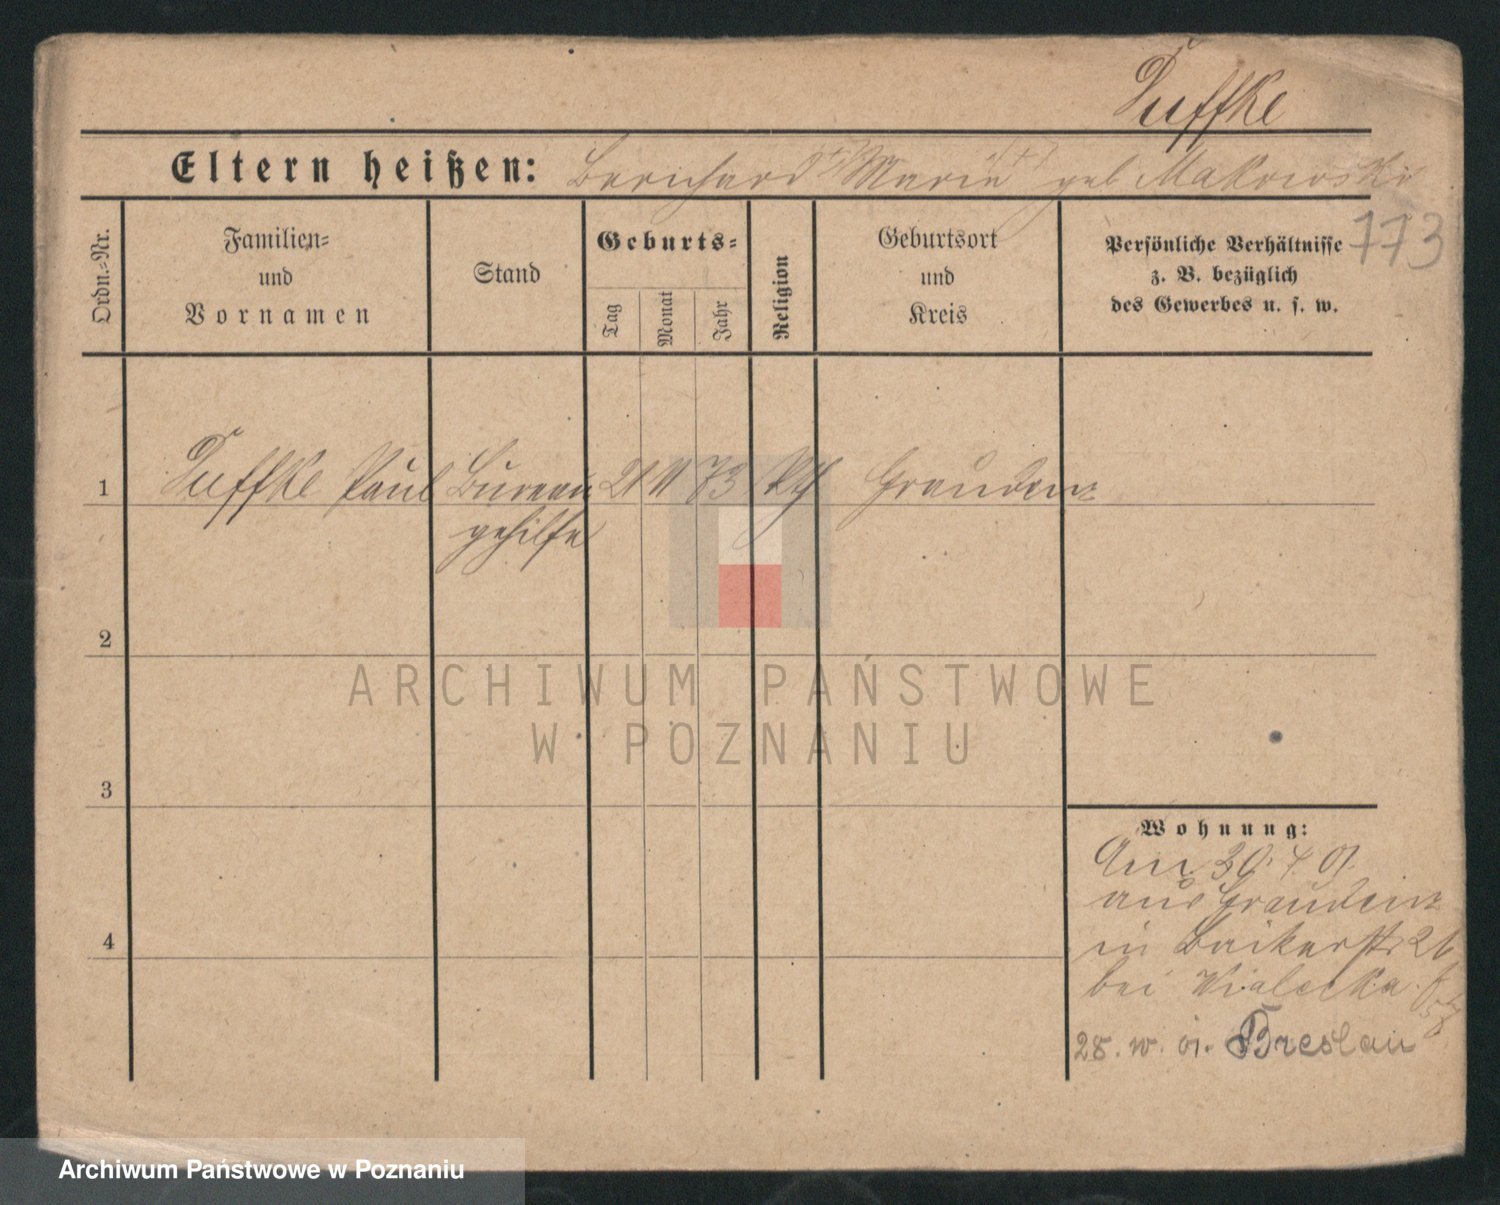 Duffke
Eltern heißen: Bernhard Marie geb Makowski
773
Ordn.-Nr.
Familien-
und
Vornamen
Stand
Geburts-
Tag
Monat
Jahr
Religion
Geburtsort
und
Kreis
Persönliche Verhältnisse
z. B. bezüglich
des Gewerbes u. s. w.
1 Duffke Paul Bureau 21 11 73 kth Graudenz
gehilfe
2
3
4
Wohnung:
Am 30. 4. 01.
aus Graudenz
in Bäckerstr 26
bei Bialecka
28. 01. Breslau
ARCHIWUM PAŃSTWOWE
W POZNANIU
Archiwum Państwowe w Poznaniu